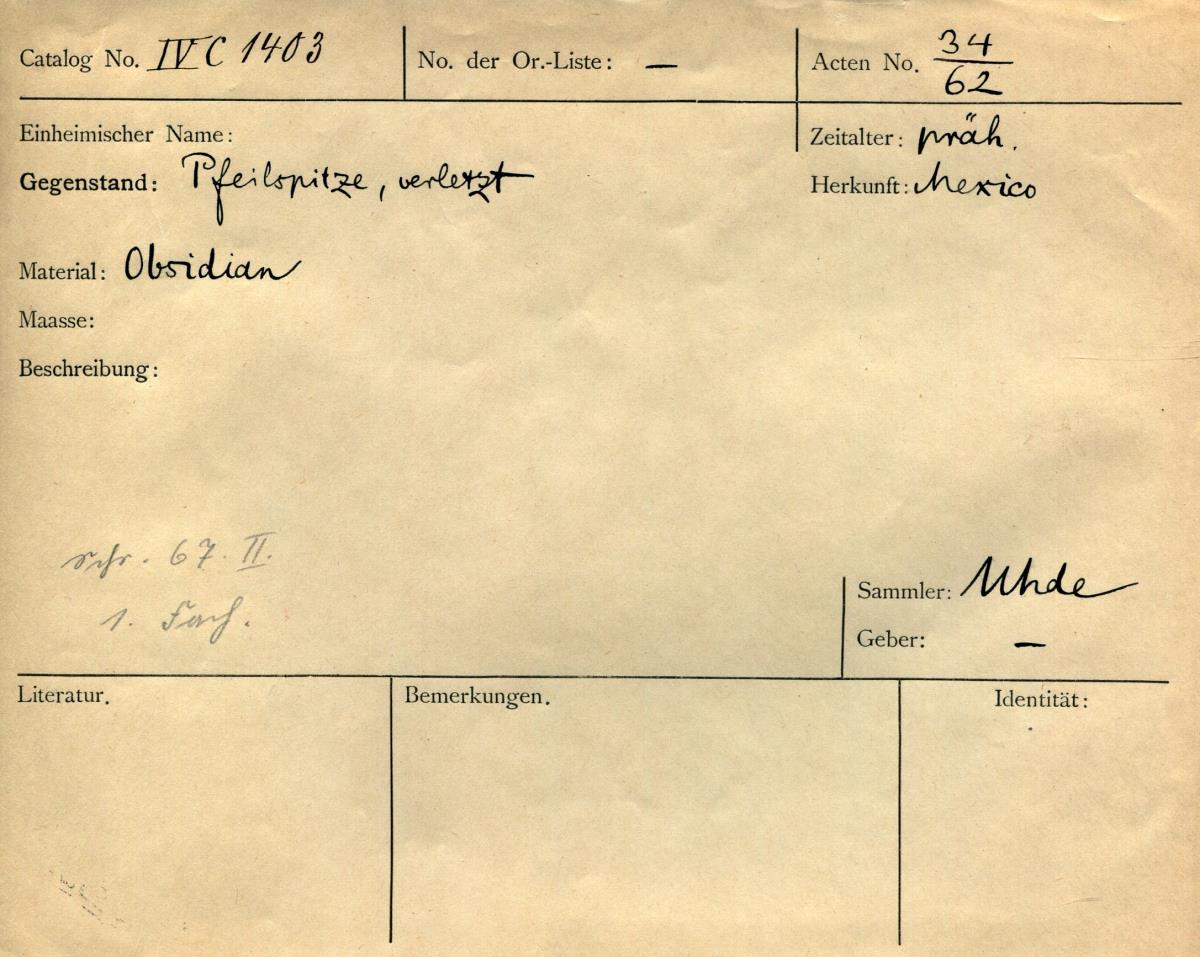 Catalog No. IV C 1403 No. der Or.-Liste: — Acten No. 34/62
Einheimischer Name: Zeitalter: präh.
Gegenstand: Pfeilspitze, verletzt Herkunft: Mexico
Material: Obsidian
Maasse:
Beschreibung:
Schr. 67. II.
1. Fach.
Sammler: Uhde
Geber: —
Literatur. Bemerkungen. Identität: